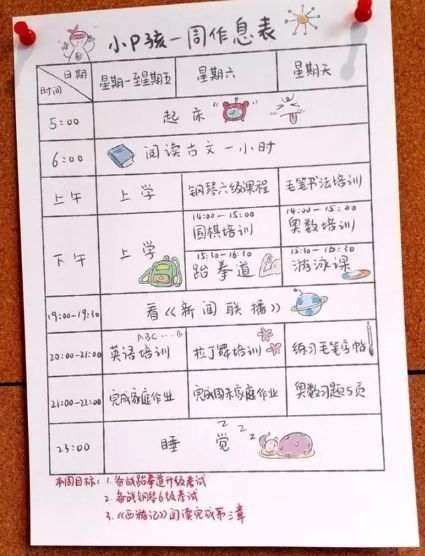 小P孩一周作息表
日期
时间
星期一至星期五 星期六 星期天
5:00 起床
6:00 阅读古文一小时
上午 上学 钢琴六级课程 毛笔书法培训
下午 上学
14:00-15:00 14:00-15:00
围棋培训 奥数培训
15:30-16:30 15:30-16:30
跆拳道 游泳课
19:00-19:30 看《新闻联播》
ABC...
20:00-21:00 英语培训 拉丁舞培训 练习毛笔字帖
21:00-22:00 完成家庭作业 完成周末家庭作业 奥数习题5页
23:00 睡觉 zzz
本周目标: 1. 备战跆拳道升级考试
2. 备战钢琴6级考试
3. 《西游记》阅读完成第三章